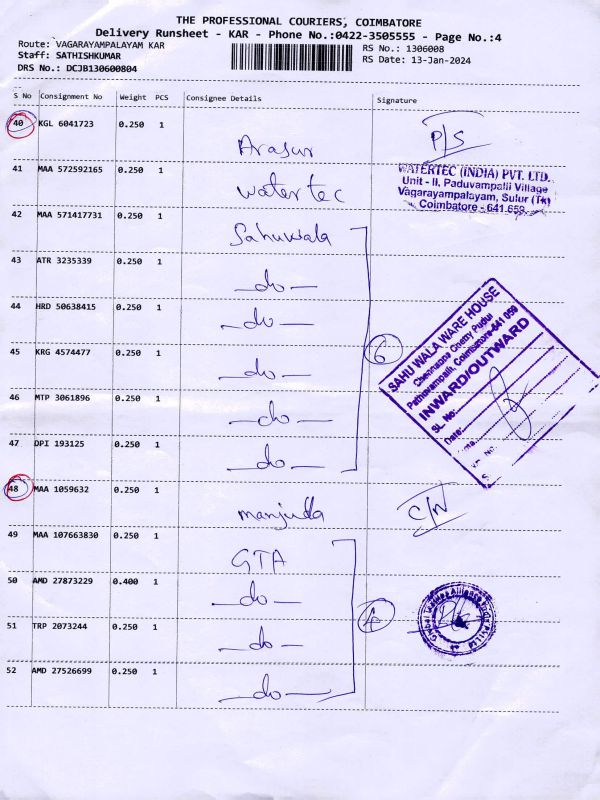 THE PROFESSIONAL COURIERS, COIMBATORE
Delivery Runsheet - KAR - Phone No.:0422-3505555 - Page No.:4
Route: VAGARAYAMPALAYAM KAR
RS No.: 1306008
Staff: SATHISHKUMAR
RS Date: 13-Jan-2024
DRS No.: DCJB130600804
S No Consignment No Weight PCS Consignee Details Signature
40 KGL 6041723 0.250 1 Arasur P/S
41 MAA 572592165 0.250 1 Watertec
WATERTEC (INDIA) PVT. LTD.
Unit - II, Paduvampalli Village
Vagarayampalayam, Sulur (Tk)
Coimbatore - 641 659
42 MAA 571417731 0.250 1 Sahuwala
43 ATR 3235339 0.250 1 -do-
44 HRD 50638415 0.250 1 -do-
45 KRG 4574477 0.250 1 -do-
46 MTP 3061896 0.250 1 -do-
47 DPI 193125 0.250 1 -do-
6
SAHU WALA WARE HOUSE
Chennappa Chetty Pudur
Pathuvampalli, Coimbatore-641 059
INWARD/OUTWARD
SL. No:
Date:
48 MAA 1059632 0.250 1 C/N
49 MAA 107663830 0.250 1 GTA
50 AMD 27873229 0.400 1 -do-
51 TRP 2073244 0.250 1 -do-
52 AMD 27526699 0.250 1 -do-
4